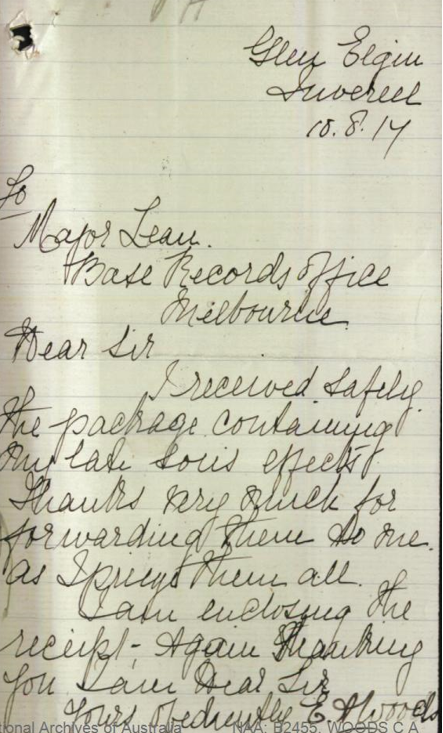 Glen Elgin
Inverell
10.8.17
To
Major Lean.
Base Records Office
Melbourne
Dear Sir
I received safely
the package containing
my late sons effects
Thanks very much for
forwarding them to me.
as I them all.
I am enclosing the
receipt - Again Thanking
you I am Dear Sir
Yours obediently E. Woods
ional Archives of Australia NAA: B2455, WOODS C A